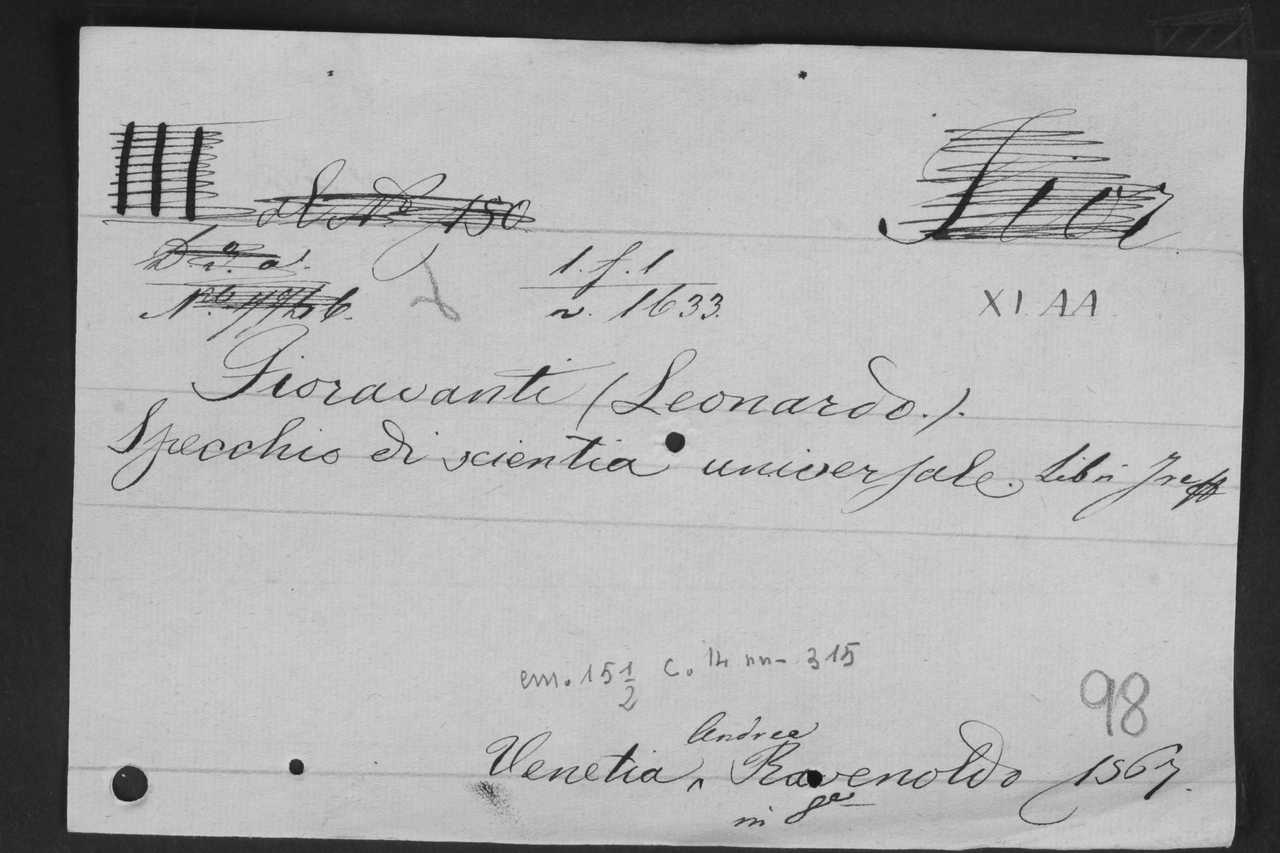 III
150
Fior
1. f. 1
n. 1633.
XI. AA
Fioravanti (Leonardo.).
Specchio di scientia universale. Libri Tre
cm. 15 1/2 c. 14 nn - 315
98
Andrea
Venetia, Ravenoldo 1567.
in 8º